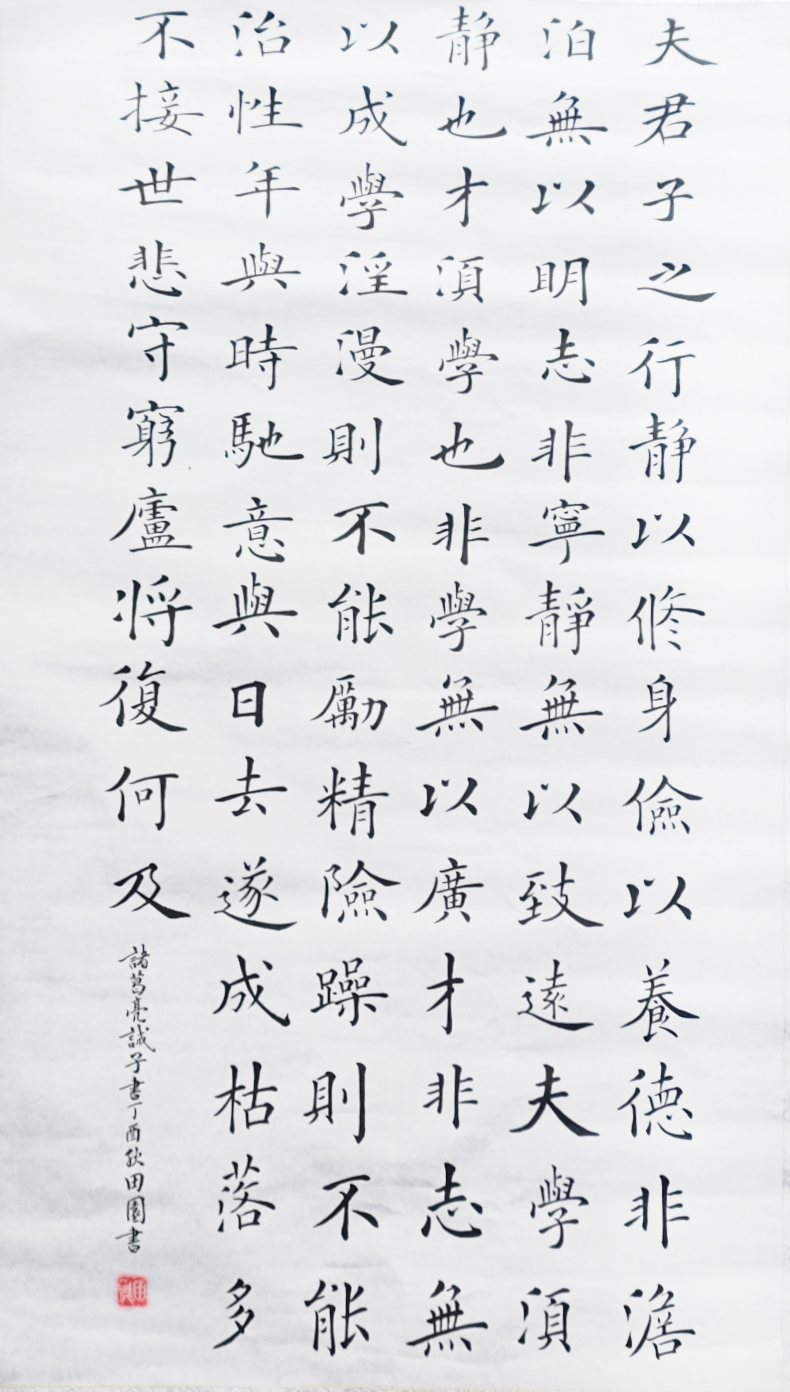 夫君子之行靜以修身儉以養德非澹
泊無以明志非寧靜無以致遠夫學須
靜也才須學也非學無以廣才非志無
以成學淫漫則不能勵精險躁則不能
治性年與時馳意與日去遂成枯落多
不接世悲守窮廬將復何及
諸葛亮誡子書丁酉秋田園書